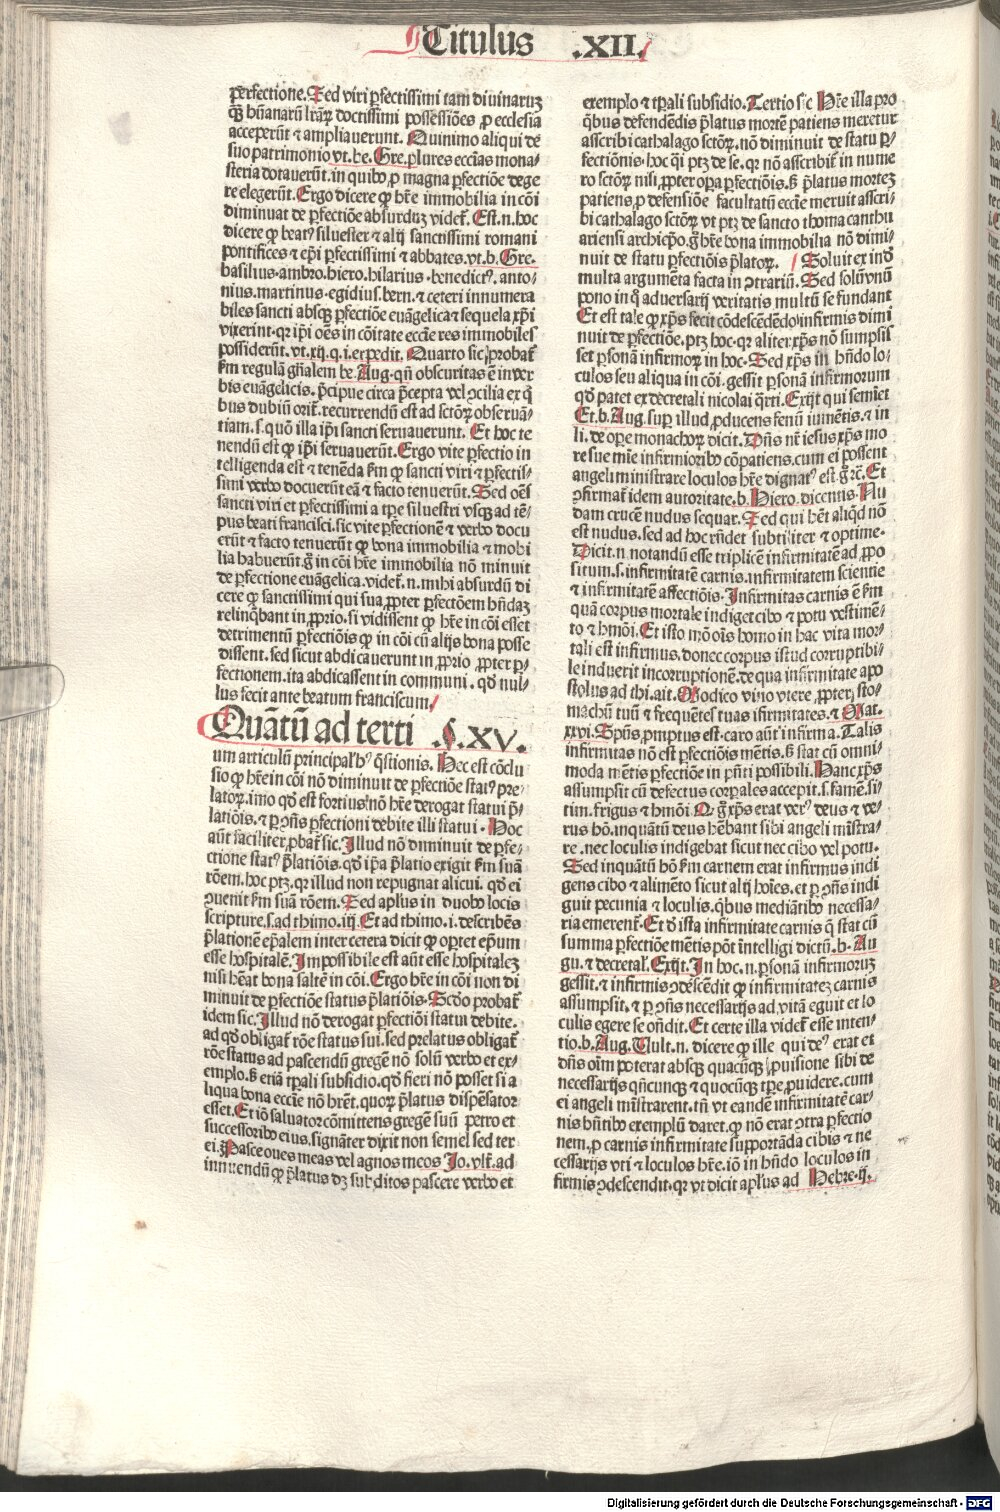 Titulus .XII.
perfectione. Sed viri pfectissimi tam diuinaruz
q̃ȝ hũanarũ lr̃aꝝ doctissimi possessiões ꝓ ecclesia
acceperũt ⁊ ampliauerunt. Quinimo aliqui de
suo patrimonio vt. be. Gre. plures eccĩas mona-
steria dotauerũt. in quibꝰ ꝓ magna ꝑfectiõe dege
re elegerũt. Ergo dicere ꝙ hr̃e immobilia in cõi
diminuat de ꝑfectiõe absurduȝ videt̃. Est. n. hoc
dicere ꝙ beatꝰ siluester ⁊ alij sanctissimi romani
pontifices ⁊ ep̃i ꝑfectissimi ⁊ abbates. vt. b. Gre.
basilius. ambro. hiero. hilarius. benedictꝰ. anto-
nius. martinus. egidius. bern. ⁊ ceteri innumera
biles sancti absqȝ ꝑfectiõe euãgelica ⁊ sequela xp̃i
vixerint. qꝛ ip̃i oẽs in cõitate eccĩe res immobiles
possiderũt. vt. xij. q. i. expedit. Quarto sic probat̃
ẜm regulã gñalem be. Aug. qñ obscuritas ẽ in ver
bis euãgelicis. p̃cipue circa p̃cepta vel ꝯsilia ex q̃
bus dubiũ orit̃. recurrendũ est ad sctõꝝ obseruã-
tiam. s. quõ illa ip̃i sancti seruauerunt. Et hoc te
nendũ est ꝙ ip̃i seruauerũt. Ergo vite ꝑfectio in
telligenda est ⁊ tenẽda ẜm ꝙ sancti viri ⁊ ꝑfectis-
simi verbo docuerũt eã ⁊ facto tenuerũt. Sed oẽs
sancti viri et ꝑfectissimi a tp̃e siluestri vsqȝ ad tẽ-
pus beati francisci. sic vite ꝑfectionẽ ⁊ verbo docu
erũt ⁊ facto tenuerũt ꝙ bona immobilia ⁊ mobi
lia habuerũt. g̃ in cõi hr̃e immobilia nõ minuit
de ꝑfectione euãgelica. videt̃. n. mihi absurdũ di
cere ꝙ sanctissimi qui sua ꝓpter ꝑfectõem hñdaȝ
relinq̃bant in ꝓprio. si vidissent ꝙ hr̃e in cõi esset
detrimentũ ꝑfectiõis ꝙ in cõi cũ alijs bona posse
dissent. sed sicut abdicauerunt in ꝓprio ꝓpter ꝑ-
fectionem. ita abdicassent in communi. qd̃ nul-
lus fecit ante beatum franciscum.
Quãtũ ad terti .§.XV.
um articulũ principal' hꝰ q̃stionis. Hec est cõclu
sio ꝙ hr̃e in cõi nõ diminuit de ꝑfectiõe statꝰ pre-
latoꝝ. imo qd̃ est fortius! nõ hr̃e derogat statui p̃-
lationis. ⁊ ꝑ ꝯñs ꝑfectioni debite illi statui. Hoc
aũt faciliter ꝓbat̃ sic. Illud nõ diminuit de ꝑfe-
ctione statꝰ p̃latiõis. qd̃ ip̃a p̃latio exigit ẜm suã
rõem. hoc ptȝ. qꝛ illud non repugnat alicui. qd̃ ei
ꝯuenit ẜm suã rõem. Sed apl̃us in duobꝰ locis
scripture. s. ad thimo. iij. Et ad thimo. i. describẽs
p̃lationẽ ep̃alem inter cetera dicit ꝙ oꝑtet ep̃um
esse hospitalẽ. Impossibile est aũt esse hospitaleȝ
nisi hẽat bona saltẽ in cõi. Ergo hr̃e in cõi non di
minuit de ꝑfectiõe status p̃latiõis. Scd̃o probat̃
idem sic. Illud nõ derogat ꝑfectiõi statui debite.
ad qd̃ obligat̃ rõe status sui. sed prelatus obligat̃
rõe status ad pascendũ gregẽ nõ solũ verbo et ex-
emplo. ẜ etiã tp̃ali subsidio. qd̃ fieri nõ posset si a
liqua bona eccĩe nõ hr̃et. quoꝝ p̃latus dispẽsator
esset. Et iõ saluator cõmittens gregẽ suũ petro et
successoribꝰ eius. signãter dixit non semel sed ter
ei. Pasce oues meas vel agnos meos Jo. vlt̃. ad
innuendũ ꝙ p̃latus dȝ subditos pascere verbo et
exemplo ⁊ tp̃ali subsidio. Tertio sic Hr̃e illa pro
q̃bus defendẽdis p̃latus mortẽ patiens meretur
asscribi cathalago sctõꝝ. nõ diminuit de statu ꝑ-
fectiõnis. hoc q̃i ptȝ de se. qꝛ nõ asscribit̃ in nume
ro sctõꝝ nisi ꝓpter oꝑa ꝑfectiõis. ẜ p̃latus morteȝ
patiens ꝓ defensiõe facultatũ eccĩe meruit asscri-
bi cathalago sctõꝝ vt ptȝ de sancto thoma canthu
ariensi archiep̃o. g̃ hr̃e bona immobilia nõ dimi-
nuit de statu ꝑfectiõis p̃latoꝝ. Soluit ex inde
multa argumẽta facta in ꝯtrariũ. Sed solũ vnũ
pono in q̃ aduersarij veritatis multũ se fundant
Et est tale ꝙ xp̃s fecit cõdescẽdẽdo infirmis dimi
nuit de ꝑfectiõe. ptȝ hoc. qꝛ aliter xp̃s nõ sumpsis
set ꝑsonã infirmoꝝ in hoc. Sed xp̃s in hñdo lo-
culos seu aliqua in cõi. gessit ꝑsonã infirmorum
qd̃ patet ex decretali nicolai q̃rti. Exijt qui semĩet
Et. b. Aug. sup illud ꝓducens fenũ iumẽtis. ⁊ in
li. de oꝑe monachoꝝ dicit. Dñs nr̃ iesus xp̃s mo
re sue mĩe infirmioribꝰ cõpatiens. cum ei possent
angeli ministrare loculos hr̃e dignatꝰ est. g̃ ⁊c̃. Et
ꝯfirmat̃ idem autoritate. b. Hiero. dicentis. Nu
dam crucẽ nudus sequar. Sed qui hẽt aliqd̃ nõ
est nudus. sed ad hoc rñdet subtiliter ⁊ optime.
Dicit. n. notandũ esse triplicẽ infirmitatẽ ad ꝓpo
situm. s. infirmitatẽ carnis. infirmitatem scientie
⁊ infirmitatẽ affectiõis. Infirmitas carnis ẽ ẜm
quã corpus mortale indiget cibo ⁊ potu vestimẽ-
to ⁊ hmõi. Et isto mõ oĩs homo in hac vita mor-
tali est infirmus. donec corpus istud corruptibi-
le induerit incorruptionẽ. de qua infirmitate apo
stolus ad thi. ait. Modico vino vtere ꝓpter sto-
machũ tuũ ⁊ frequẽtes tuas ifirmitates. ⁊ Mat.
xxvi. Sp̃us ꝓmptus est. caro aũt infirma. Talis
infirmitas nõ est ꝑfectiõis mẽtis. ẜ stat cũ omni-
moda mẽtis ꝑfectiõe in pñti possibili. Hanc xp̃s
assumpsit cũ defectus corꝑales accepit. s. famẽ. si-
tim. frigus ⁊ hmõi. Qꝛ g̃ xp̃s erat verꝰ deus ⁊ ve-
rus hõ. inquãtũ deus hẽbant sibi angeli mĩstra-
re. nec loculis indigebat sicut nec cibo vel potu.
Sed inquãtũ hõ ẜm carnem erat infirmus indi
gens cibo ⁊ alimẽto sicut alij hoĩes. et ꝑ ꝯñs indi
guit pecunia ⁊ loculis. q̃bus mediãtibꝰ necessa-
ria emerent̃. Et d̃ ista infirmitate carnis q̃ stat cũ
summa ꝑfectiõe mẽtis põt intelligi dictũ. b. Au
gu. ⁊ decretal'. Exijt. In hoc. n. ꝑsonã infirmoruȝ
gessit. ⁊ infirmis ꝯdescẽdit ꝙ infirmitateȝ carnis
assumpsit. ⁊ ꝑ ꝯñs necessarijs ad vitã eguit et lo
culis egere se oñdit. Et certe illa videt̃ esse inten-
tio. b. Aug. Uult. n. dicere ꝙ ille qui deꝰ erat et
dñs oĩm poterat absqȝ quacũqȝ ꝓuisione sibi de
necessarijs qñcunqȝ ⁊ quocũqȝ tp̃e ꝓuidere. cum
ei angeli mĩstrarent. tñ vt eandẽ infirmitatẽ car-
nis hñtibꝰ exemplũ daret. ꝙ nõ erat ꝯtra ꝑfectio
nem. ꝓ carnis infirmitate supportãda cibis ⁊ ne
cessarijs vti ⁊ loculos hr̃e. iõ in hñdo loculos in
firmis ꝯdescendit. qꝛ vt dicit apl̃us ad Hebre. ij.
Digitalisierung gefördert durch die Deutsche Forschungsgemeinschaft - DFG